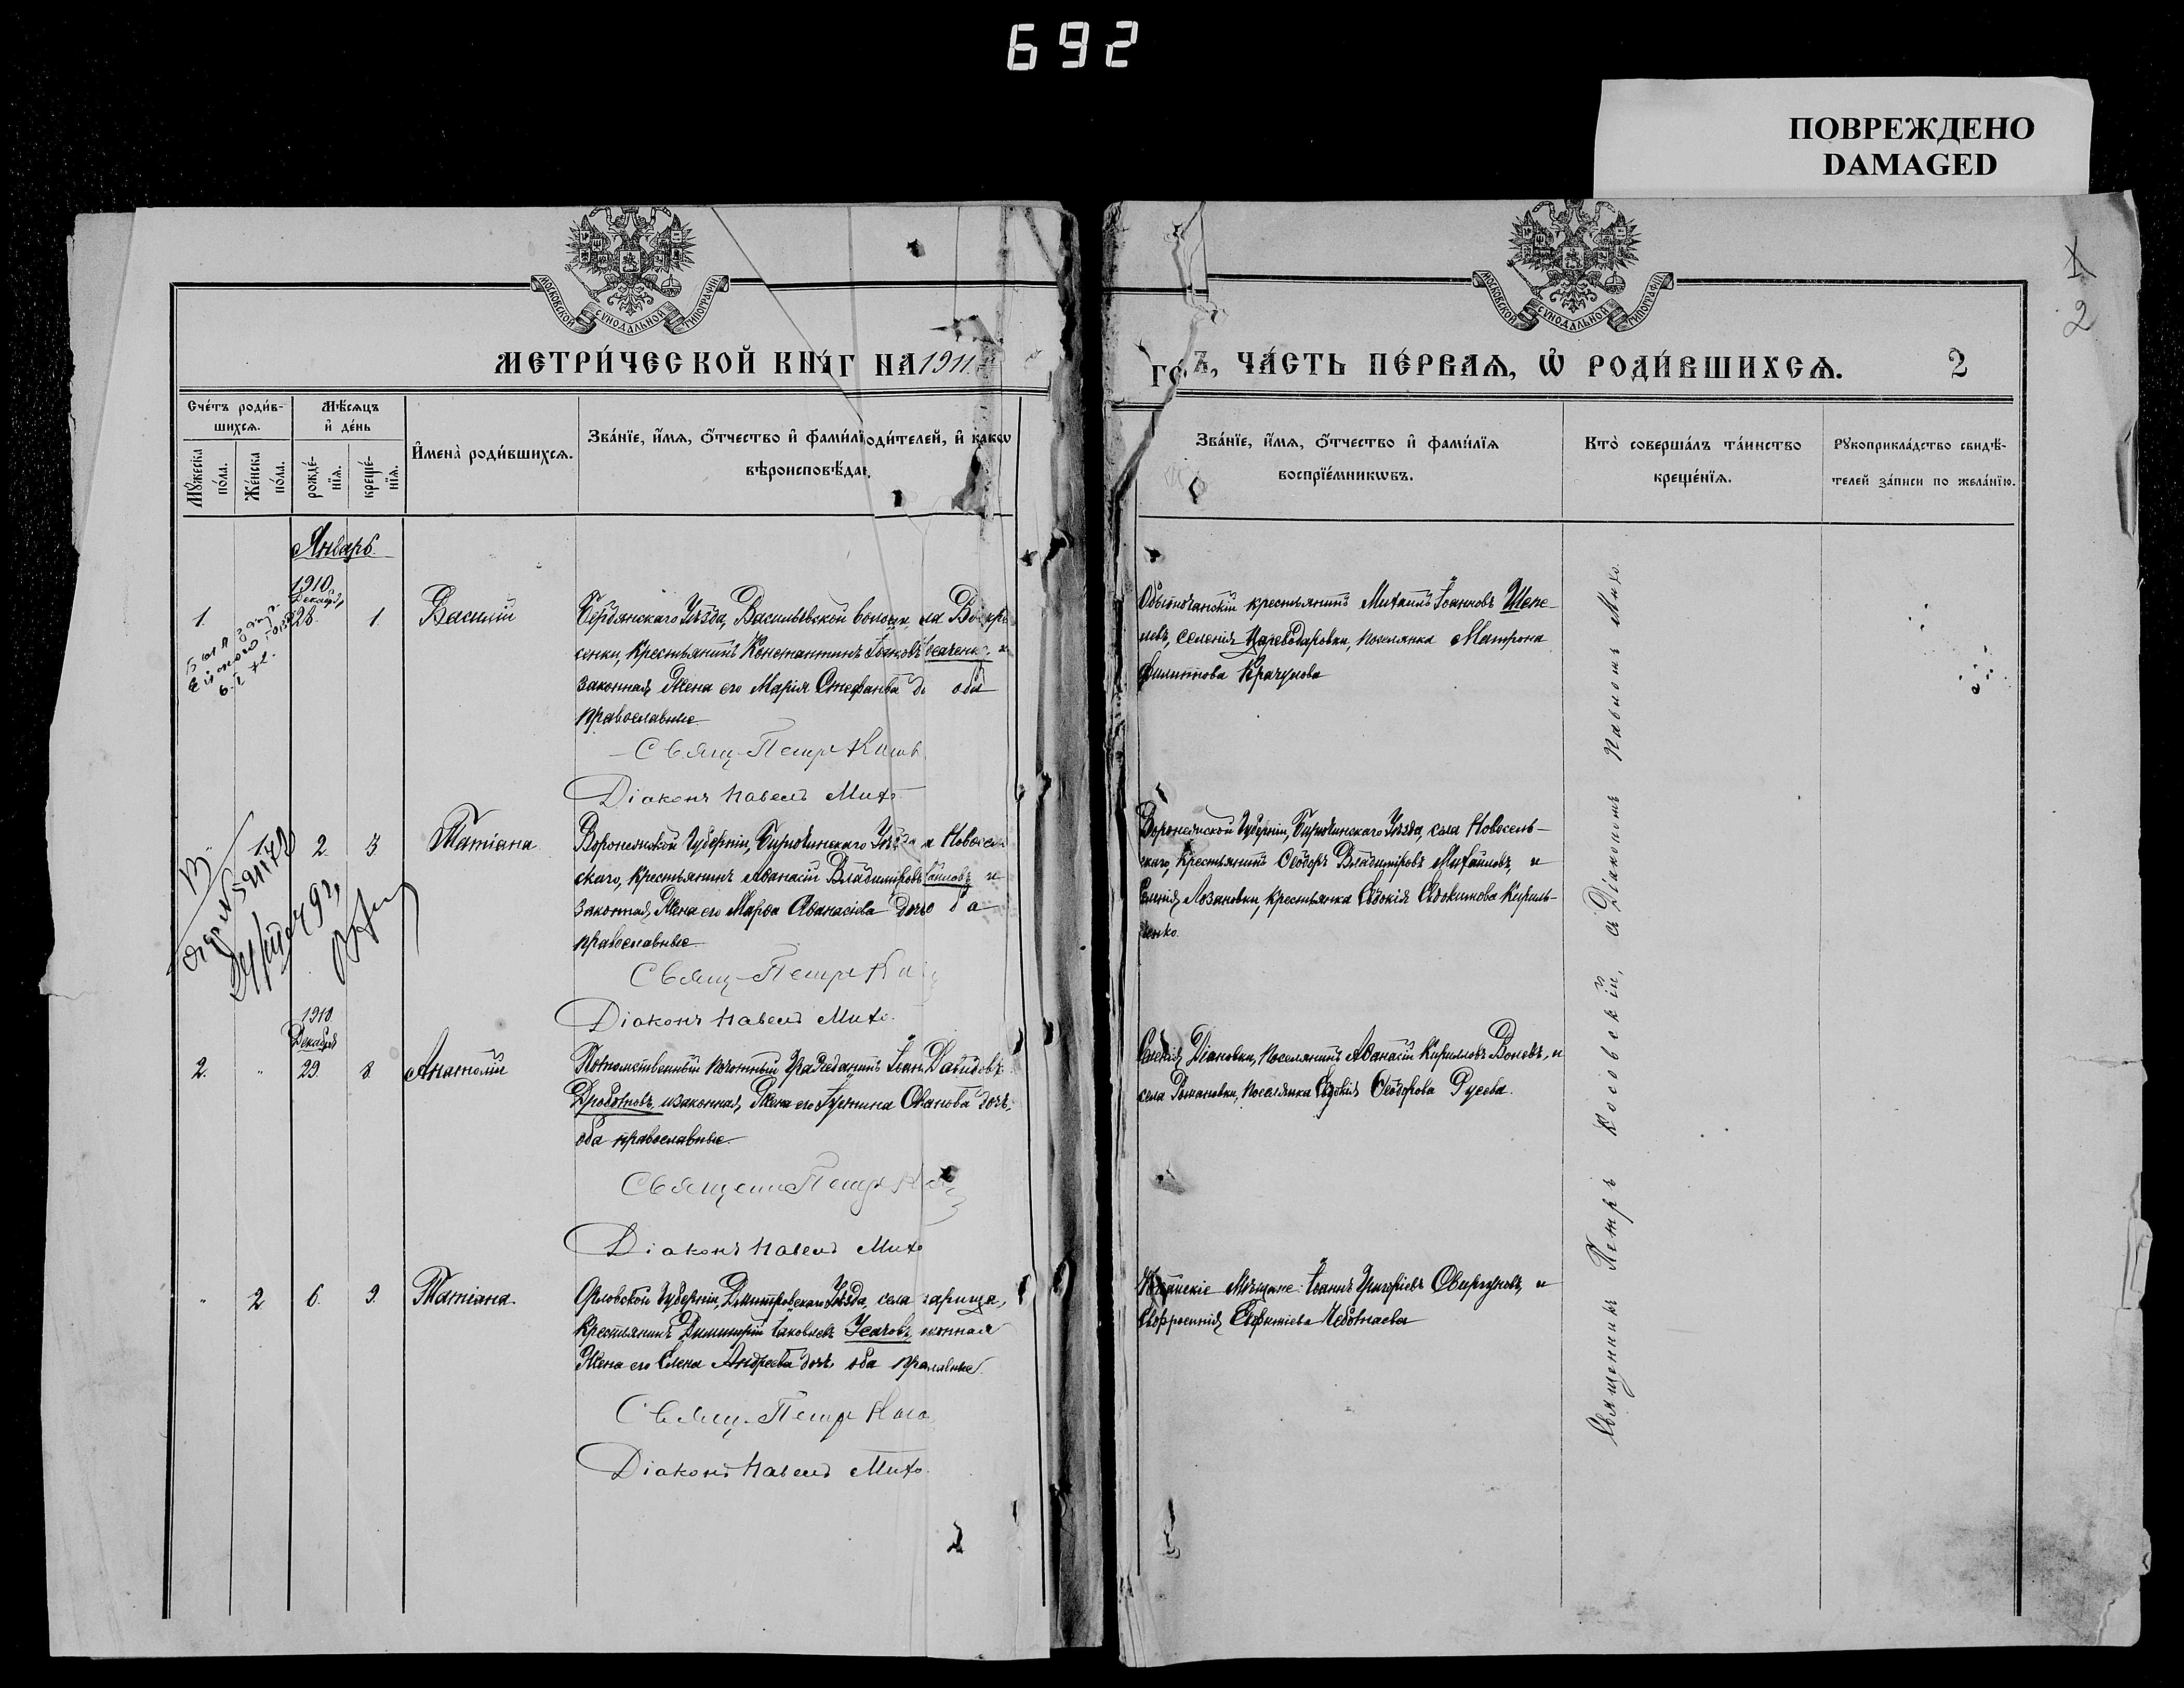 692
ПОВРЕЖДЕНО
DAMAGED
МОСКОВСКОЙ СѴНОДАЛЬНОЙ ТИПОГРАФІИ
МОСКОВСКОЙ СѴНОДАЛЬНОЙ ТИПОГРАФІИ
1
2
МЕТРИ́ЧЕСКОЙ КНИ́Г НА 1911
ГО Ъ, ЧА́СТЬ ПЕ́РВАѦ, Ѡ҆ РОДИ́ВШИХСѦ. 2
Сче́тъ роди́в-
шихсѧ.
Мѣ́сѧцъ
и҆ де́нь
Мꙋ́жеска
по́ла.
Же́нска
по́ла.
рожде́-
нїѧ.
креще́-
нїѧ.
И҆мена̀ роди́вшихсѧ.
Зва́нїе, и҆́мѧ, ѻ҆́тчество и҆ фами́лї оди́телей, и҆ како́гѡ
вѣроисповѣ́данї
Зва́нїе, и҆́мѧ, ѻ҆́тчество и҆ фами́лїѧ
воспрїе́мникѡвъ.
Кто̀ соверша́лъ та́инство
креще́нїѧ.
Рꙋкоприкла́дство свидѣ́-
телей за́писи по жела́нїю.
Январь
1910
Декабря
1. 28. 1. Василій
Бердянскаго Уѣзда, Васильевской волости, ла Воскре
сенки, крестьянинъ Константинъ и
законная жена его Марія Стефанова до оба
православные
Свящ. Петръ Косов
Діаконъ Павелъ Михо
Обыточанскій крестьянинъ Михаилъ Іоанновъ Шепе-
левъ, селенія Царедаровки, поселянка Матрона
Филиппова Крачунова
2. 3 Татіана
Воронежской Губерніи, Бирюченскаго Уѣзда а Новосель
скаго, крестьянинъ Аѳанасій Владиміровъ аиловъ и
законная жена его Марѳа Аѳанасіева дочь о а
православные
Свящ. Петръ Ко
Діаконъ Павелъ Михо
Воронежской Губерніи, Бирюченскаго Уѣзда, села Новосель-
скаго, крестьянинъ Ѳеодоръ Владиміровъ Михаиловъ, и
селенія Лозановки, крестьянка Евдокія Евдокимова Кириль-
ченко.
1910
Декабря
2. " 29. 8. Анатолій
Потомственный почотный гражданинъ Іоан. Давидовъ
Дроботовъ и законная жена его Іуліанова дочь,
оба православные.
Священ Петръ К
Діаконъ Павелъ Михо
Селенія Діановки, поселянинъ Аѳанасій Кирилловъ Воневъ, и
села Романовки, поселянка Евдокія Ѳеодорова Русева.
" 2 6. 9. Татіана.
Орловской Губерніи, Дмитровскаго Уѣзда, села гарища,
крестьянинъ Димитрій Іаковлевъ Усачовъ конная
жена его Елена Андреева дочь, оба пра славные.
Свящ. Петръ Косо
Діаконъ Павелъ Михо.
мѣщане: Іоаннъ Григоріевъ и
Евфросинія Евфиміева Чеботаева
Священникъ Петръ Косовскій, съ Діакономъ Павломъ Михо.
2